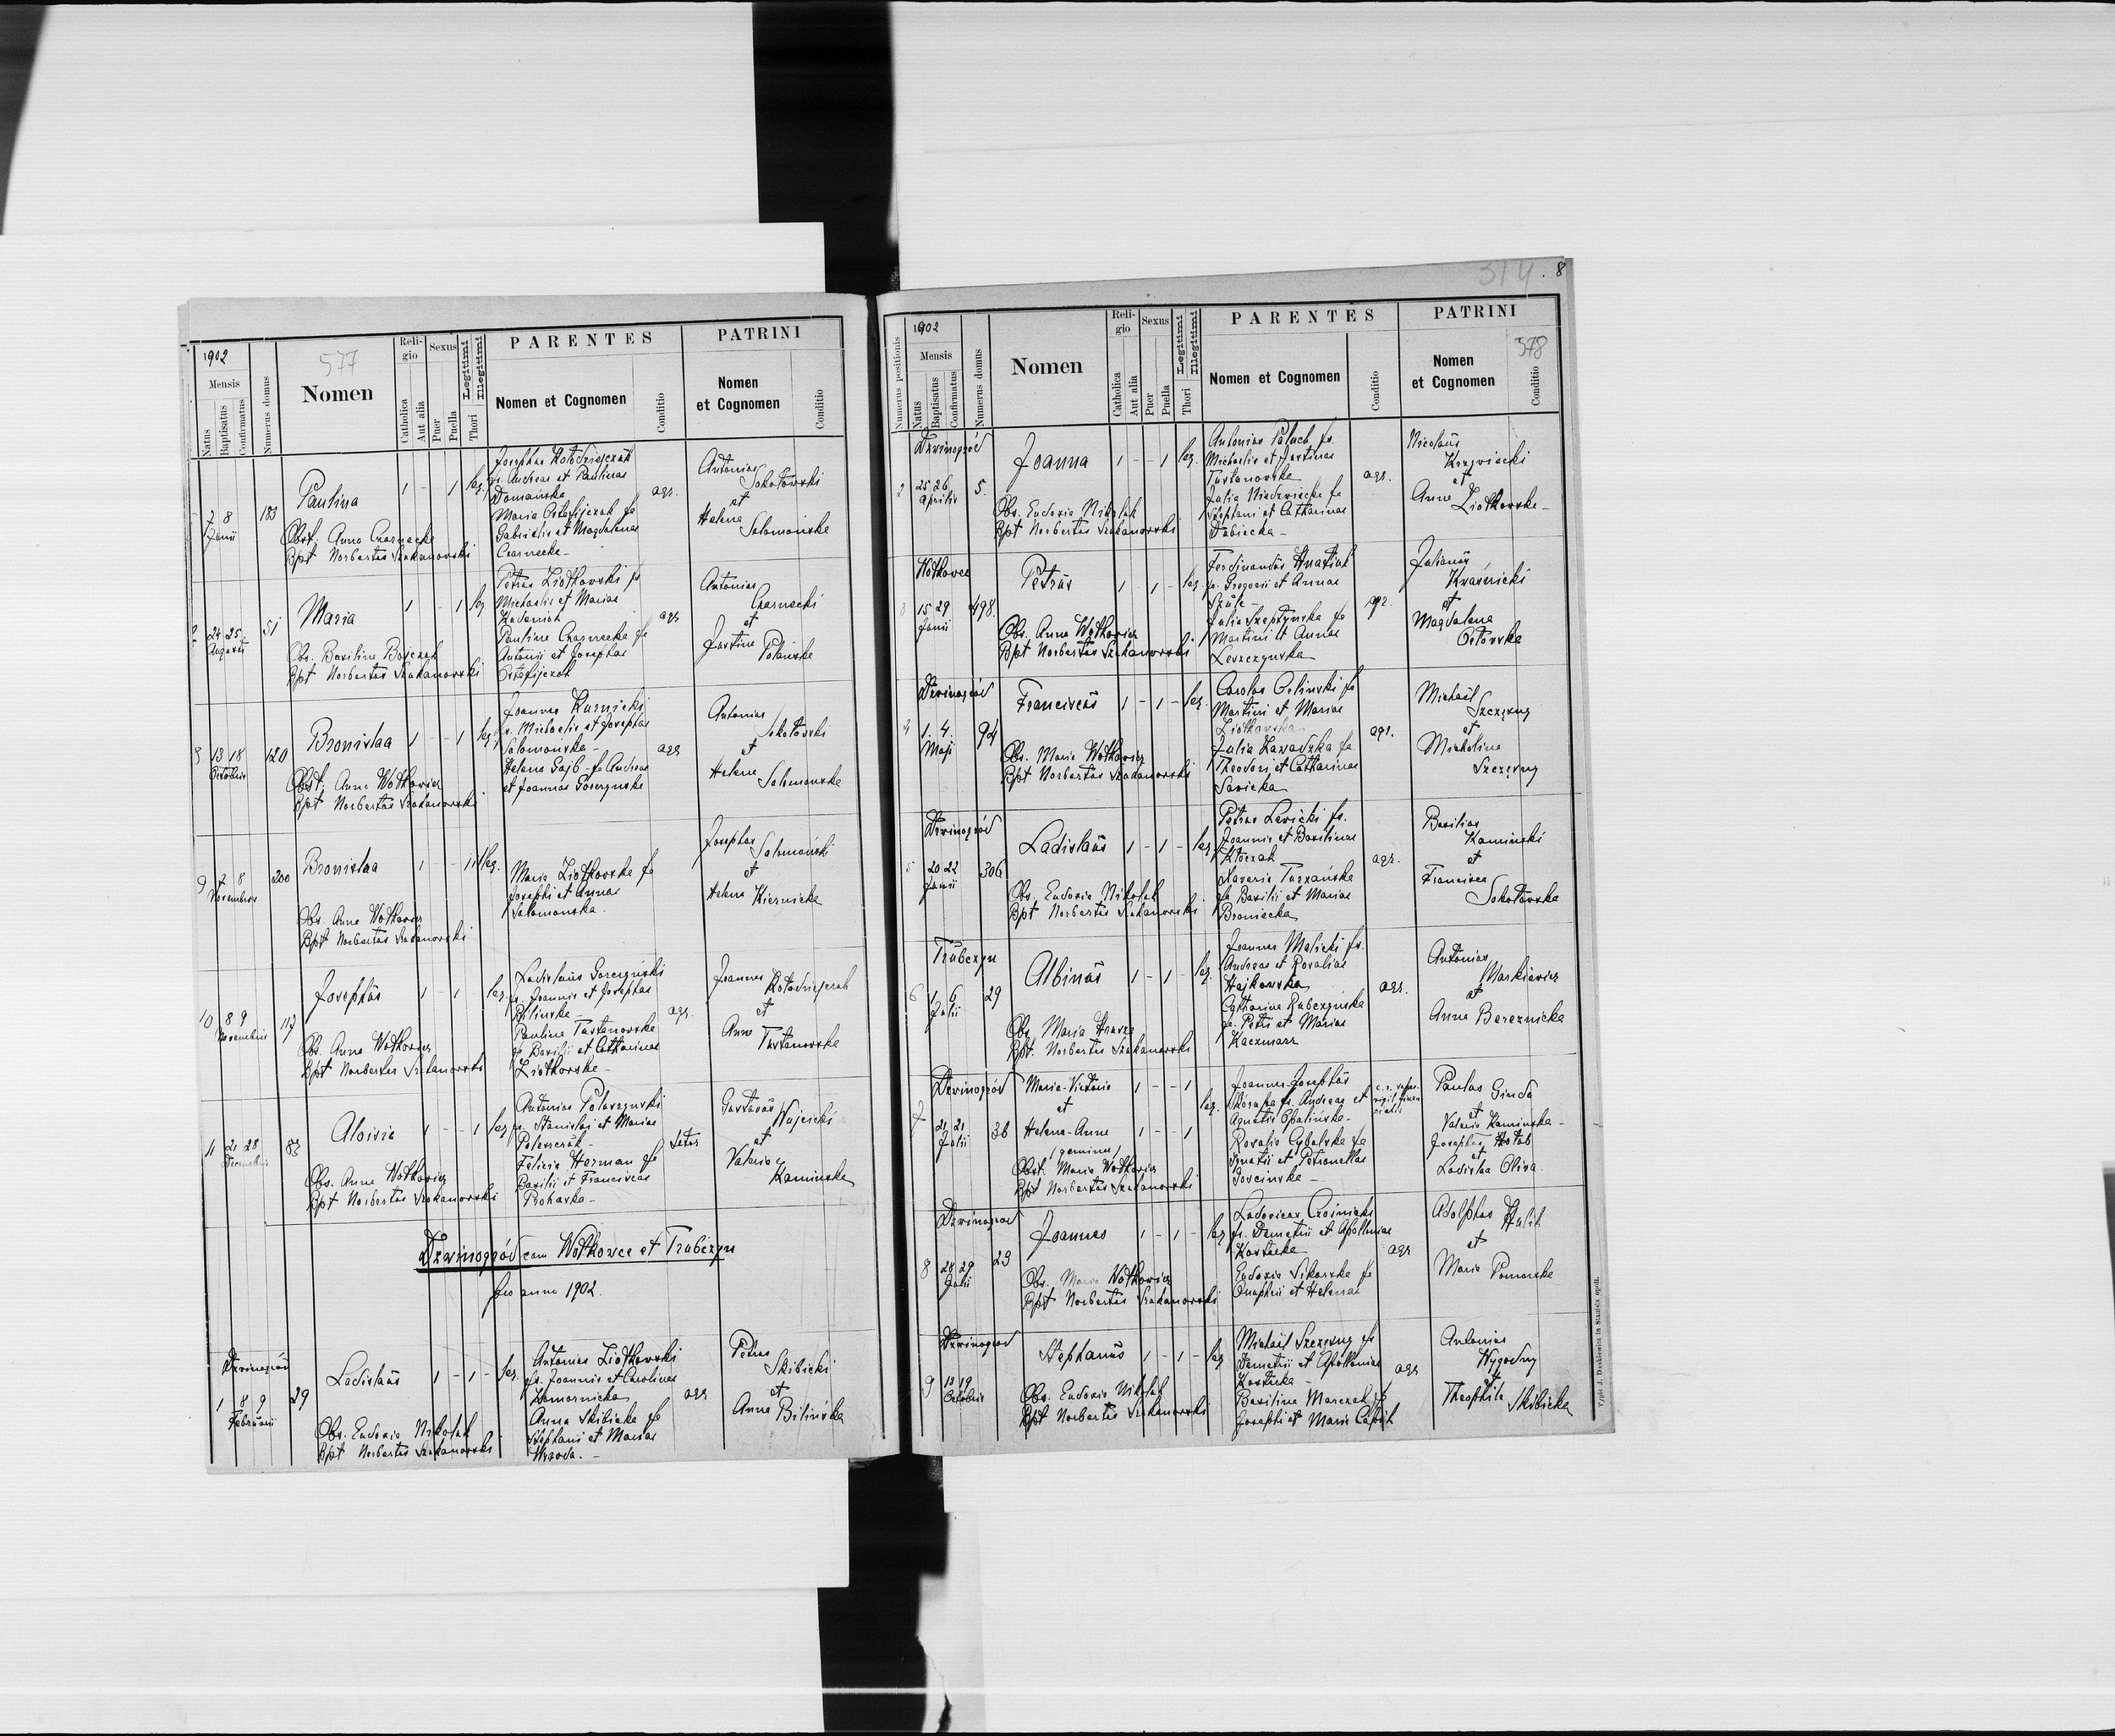 1902
577
Nomen
Mensis
Natus
Baptisatus
Confirmatus
Numerus domus
Religio
Catholica
Aut alia
Sexus
Puer
Puella
Legitimi
Illegitimi
Thori
PARENTES
Nomen et Cognomen
Conditio
PATRINI
Nomen
et Cognomen
Conditio
7 8
Junii
183
Paulina
1 - - 1 leg.
Obst. Anna Czarnecka
Bpt Norbertus Szakanowski
Josephus Kołodziejczak
fs. Andreae et Paulinae
Domańska
Maria Ostafijczuk fa
Gabrielis et Magdalenae
Czarnecka -
agr.
Antonius
Sokołowski
et
Helena
Salamońska
24 25
Augusti
51
Maria
1 - 1 leg
Obs. Basilina
Bpt Norbertus Szakanowski
Petrus Ziołkowski fs
Michaelis et Mariae
Pauline Czarnecka fa
Antonii et Josephae
Ostafijczuk
agr
Antonius
Czarnecki
et
Justina
Polańska
13 18
Octobris
120
Bronislaa
1 - - 1 leg
Obst. Anna Wołkowicz
Bpt Norbertus Szakanowski
Joannes Kurnicki
fs. Michaelis et Josephae
Salamońska -
Helena Gajb - fa Andreae
et Joannae Gorczynska
agr
Antonius
Sokołowski
et
Helena
Salamońska
9
7 8
Novembris
200
Bronislaa
1 - - 1 Illeg.
Obs. Anna Wołkowicz
Bpt Norbertus Szakanowski
Maria Ziołkowska fa
Josephi et Annae
Salamonska -
Josephus
Salamoński
et
Helena Kiernicka
10
8 9
Novembris
117
Josephus
1 - 1 leg
Obs. Anna Wołkowicz
Bpt Norbertus Szakanowski
Ladislaus Gorczyński
fs. Joannis et Josephae
Bilinska -
Paulina Tustanowska
fa Basilii et Catharinae
Ziołkowska -
agr.
Joannes
Kołodziejczak
et
Anna
Tustanowska
11
21 28
Decembris
83
Aloisia
1 - - 1 leg
Obs. Anna Wołkowicz
Bpt Norbertus Szakanowski
Antonius
fs. Stanislai et Mariae
Felicia Herman fa
Basilii et Franciscae
Prohaska -
Gustavus
Wujcicki
et
Valeria
Kaminska
Dzwinogród cum Wołkowce et Trubczyn
pro anno 1902.
Dzwinogród
1
8 9
Februarii
29
Ladislaus
1 - 1 - leg.
Obs. Eudoxia Mikolak
Bpt Norbertus Szakanowski
Antonius Ziołkowski
fs. Joannis et Carolinae
Komornicka
Anna Skibicka fa
Stephani et Mariae
Wrzoda. -
agr
Petrus
Skibicki
et
Anna Bilińska
314. 8
1902
Numerus positionis
Mensis
Natus
Baptisatus
Confirmatus
Numerus domus
Nomen
Religio
Catholica
Aut alia
Sexus
Puer
Puella
Legitimi
Illegitimi
Thori
PARENTES
Nomen et Cognomen
Conditio
PATRINI
578
Nomen
et Cognomen
Conditio
Dzwinogród
2
25 26
Aprilis
5.
Joanna
1 - - 1 leg.
Obs. Eudoxia Mikolak
Bpt Norbertus Szakanowski
Antonius Paluch fs.
Michaelis et Justinae
Tustanowska
Julia Niedzwiecka fa
Stephani et Catharinae
Dubiecka -
agr.
Nicolaus
Krzywiecki
et
Anna
Ziołkowska -
Wołkowce
3
15 29
Junii
498
Petrus
1 - 1 - leg
Obs. Anna Wołkowicz
Bpt Norbertus Szakanowski
Ferdinandus Hnatiuk
fs. Gregorii et Annae
Julia Szeptynska fa
Martini et Annae
Leszczynska
agr.
Julianus
Kraśnicki
et
Magdalena
Ostowska
Dzwinogród
4
1. 4.
Maji
94
Franciscus
1 - 1 - leg.
Obs. Maria Wołkowicz
Bpt Norbertus Szakanowski
Carolus Orlinski fs
Martini et Mariae
Ziołkowska
Julia Zawadzka fa
Theodori et Catharinae
Savicka
agr.
Michael
Szczęsny
et
Michalina
Szczęsny
Dzwinogród
5
20 22
Junii
306
Ladislaus
1 - 1 - leg
Obs. Eudoxia Mikolak
Bpt Norbertus Szakanowski
Petrus Levicki fs.
Joannis et Basilinae
Kloczak
Xaveria Turzańska
fa Basilii et Mariae
Broniecka
agr.
Basilius
Kaminski
et
Francisca
Sokołowska
Trubczyn
6
1 6
Julii
29
Albinus
1 - 1 - leg.
Obs. Maria
Bpt. Norbertus Szakanowski
Joannes Malicki fs.
Andreae et Rosaliae
Hajkowska
Catharina Rabczynska
fa. Petri et Mariae
Kaczmarz
agr.
Antonius
Markiewicz
et
Anna Bereznicka
Dzwinogród
7
21 21
Julii
36
Maria-Victoria
1 - - 1
et
leg.
Helena-Anna
1 - - 1
(geminae)
Obst. Maria Wołkowicz
Bpt Norbertus Szakanowski
Joannes Josephus
fs. Andreae et
Agnetis Opalińska -
Rosalia Cybulska fa
Ignatii et Petronellae
Goscinska -
Paulus Ginda
et
Valeria Kaminska -
Josephus Hołub
et
Ladislaa Oliva.
Dzwinogród
8
28 29
Julii
23
Joannes
1 - 1 - leg
Obs. Maria Wołkowicz
Bpt Norbertus Szakanowski
Ludovicus Crośnicki
fs. Demetrii et Apolloniae
Kostecka
Eudoxia Sikorska fa
Onuphrii et Helenae
agr
Adolphus Hulik
et
Maria Pomorska
Dzwinogrod
9
18 19
Octobris
Stephanus
1 - 1 - leg
Obs. Eudoxia Mikolak
Bpt Norbertus Szakanowski
Michaël Szczęsny fs
Demetrii et Apolloniae
Kostecka -
Basilina Marczak fa
Josephi et Maria
agr
Antonius
Wygodny
et
Theophila Skibicka
Typis J. Dankiewicz in Stanisłaopoli.